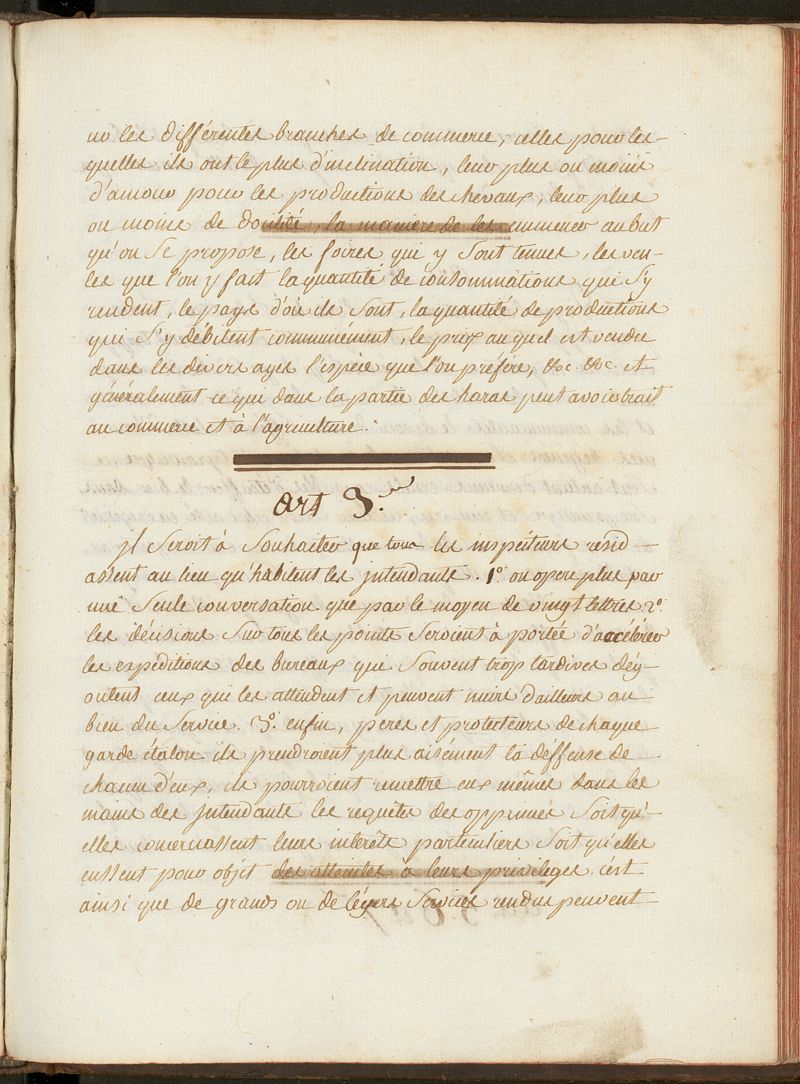 no les différentes branches de commerce, celles pour les-
quelles ils ont le plus d'inclination, leur plus ou moins
d'amour pour les productions des chevaux, leur plus
ou moins de docilité, la maniere de les emmener au but
qu'on se propose, les foires qui y sont tenues, les ven-
tes que l'on y fait la quantité de consommations qui s'y
rendent, le pays d'où ils sont, la quantité de productions
qui s'y débitent communément, le prix auquel est vendue
dans les divers ages l'espéce que l'on préfére, &c. &c. et
généralement ce qui dans la partie des haras peut avoir trait
au commerce et à l'agriculture.
Art 3.
jl seroit à souhaiter que tous les inspecteurs resid-
assent au lieu qu'habitent les jntendants. 1.° on opere plus par
une seule conversation que par le moyen de vingt lettres 2.°
les décisions sur tous les points seroient à portée d'accélérer
les expeditions des bureaux qui souvent trop tardives dég-
outent ceux qui les attendent et peuvent nuire d'ailleurs au
bien du service. 3.° enfin, peres et protecteurs de chaque
garde étalon ils prendroient plus aisément la déffense de
chacun d'eux, ils pourroient remettre eux mêmes dans les
mains des jntendants les requêtes des opprimés soit qu'-
elles concernassent leurs interêts particuliers soit qu'elles
eussent pour objet des atteintes à leurs privileges. c'est
ainsi que de grands ou de légers services rendus peuvent